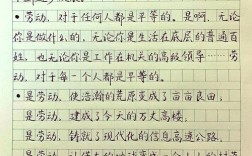 ●劳动,对于任何人都是平等的。是啊,无论
你是做什么的,无论你是生活在底层的普通百
姓,也无论你是工作在机关的高级领导……劳
动,对于每一个人都是平等的。
●是劳动,使浩瀚的荒原变成了亩亩良田,
是劳动,建成了今天的万丈高楼,
是劳动,铸就了现代化的信息高速公路,
是劳动,让